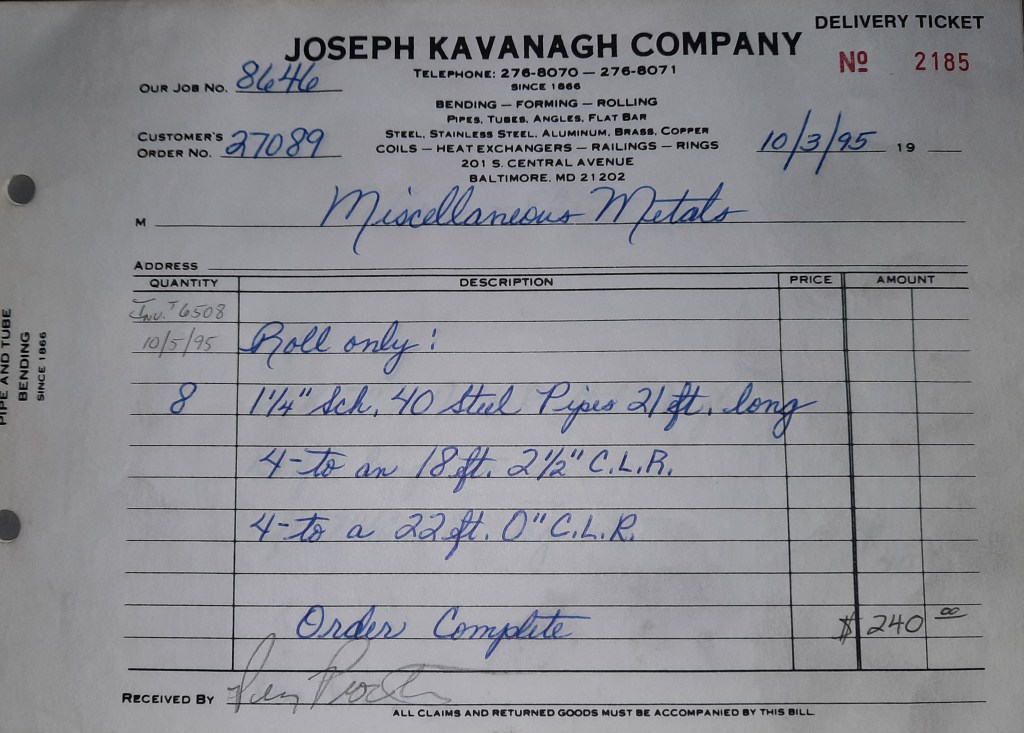 DELIVERY TICKET
JOSEPH KAVANAGH COMPANY
Nº 2185
TELEPHONE: 276-8070 — 276-8071
SINCE 1866
OUR JOB NO. 8646
BENDING — FORMING — ROLLING
PIPES, TUBES, ANGLES, FLAT BAR
STEEL, STAINLESS STEEL, ALUMINUM, BRASS, COPPER
CUSTOMER'S
ORDER NO. 27089
COILS — HEAT EXCHANGERS — RAILINGS — RINGS
10/3/95 19
201 S. CENTRAL AVENUE
BALTIMORE, MD 21202
M Miscellaneous Metals
ADDRESS
QUANTITY DESCRIPTION PRICE AMOUNT
Inv. # 6508
10/5/95 Roll only:
8 1 1/4" Sch. 40 Steel Pipes 21 ft. long
4-to an 18 ft. 2 1/2" C.L.R.
4-to a 22 ft. 0" C.L.R.
Order Complete $ 240 00
RECEIVED BY
ALL CLAIMS AND RETURNED GOODS MUST BE ACCOMPANIED BY THIS BILL
PIPE AND TUBE
BENDING
SINCE 1866